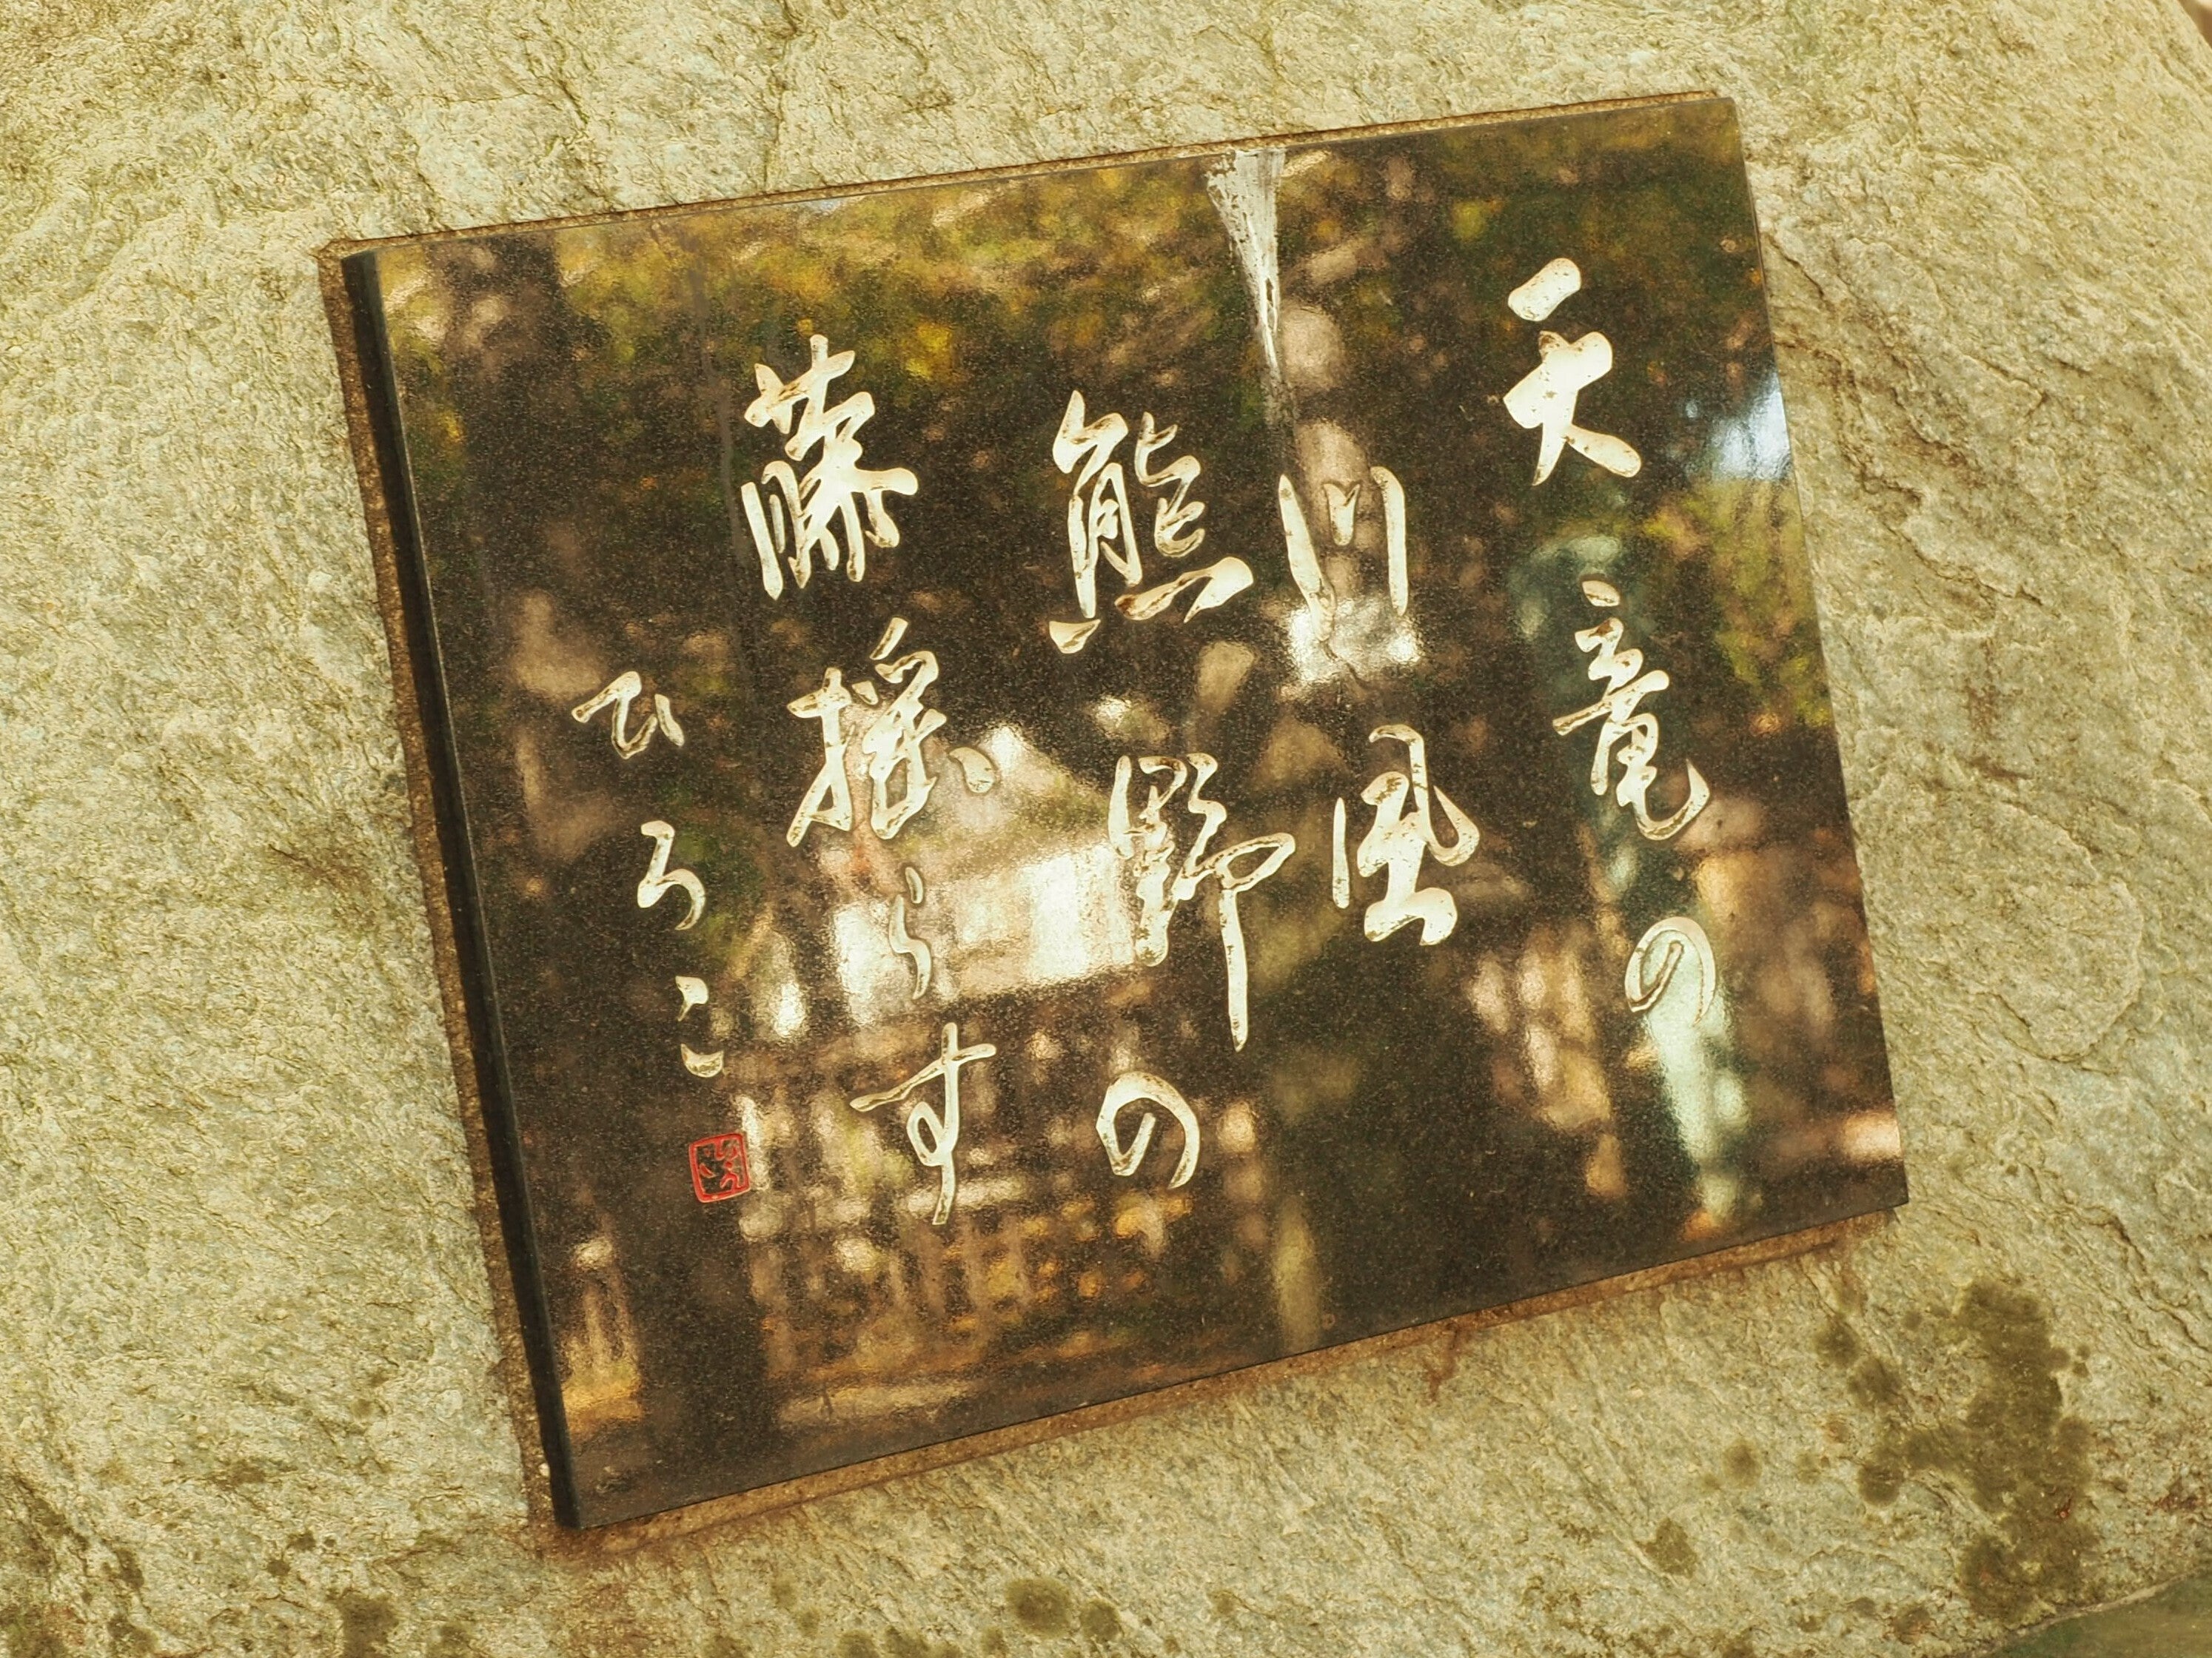 天竜の
川風
熊野の
藤揺らす
ひろこ